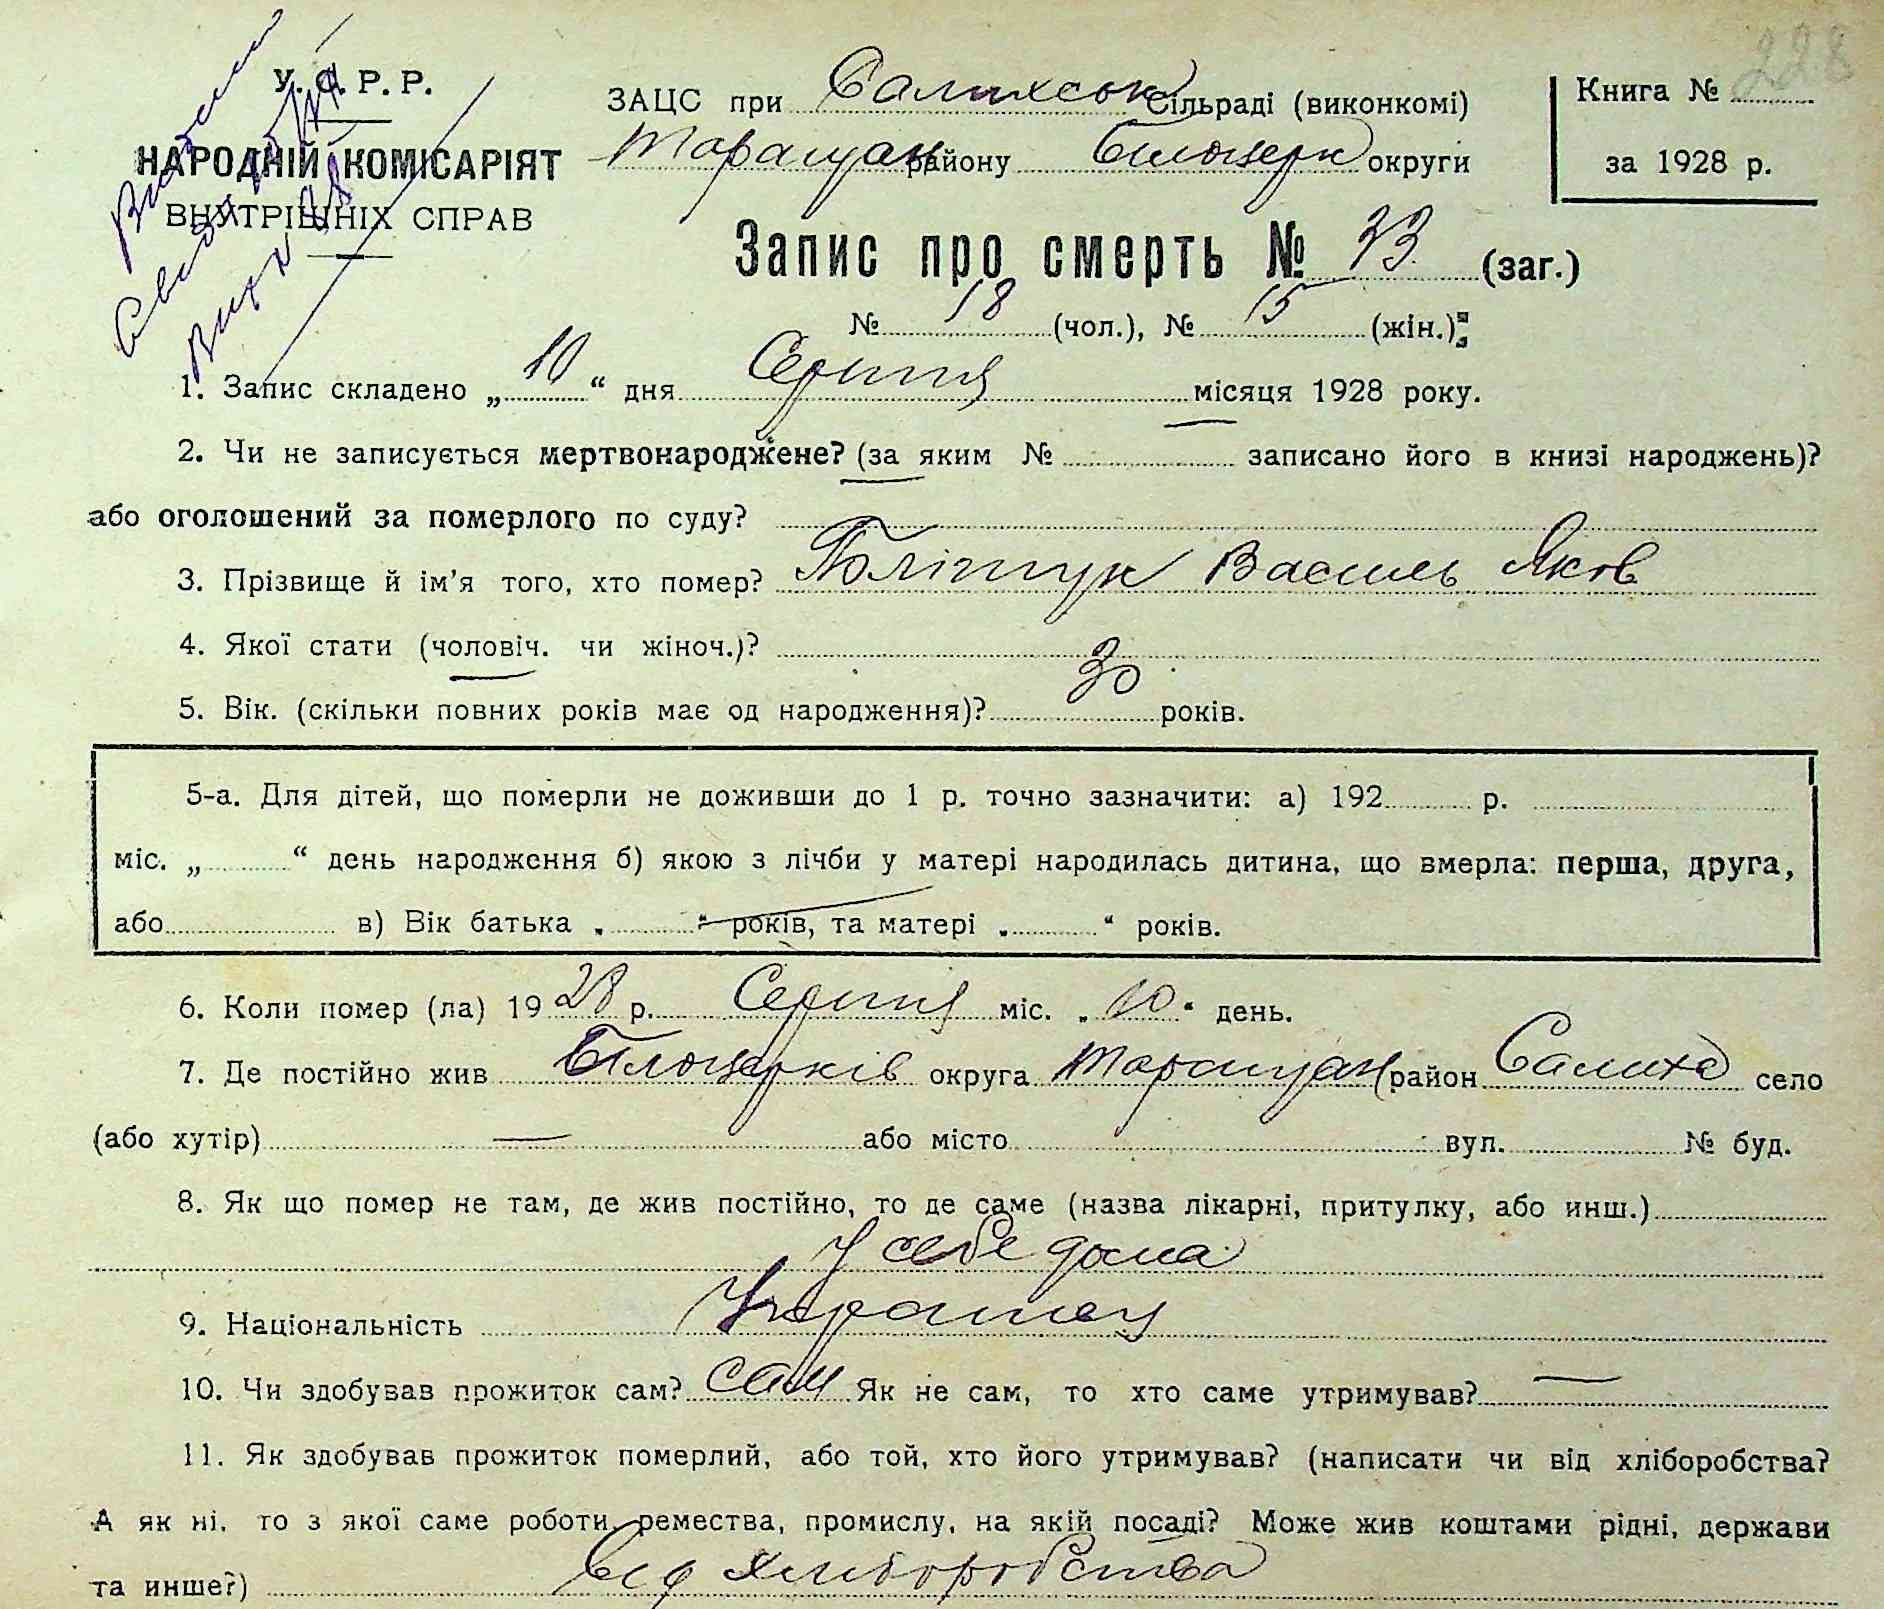 228
У. С. Р. Р.
НАРОДНІЙ КОМІСАРІЯТ
ВНУТРІШНІХ СПРАВ
ЗАЦС при Салихськ Сільраді (виконкомі)
Таращан району Білоцерк округи
Книга №
за 1928 р.
Запис про смерть № 33 (заг.)
№ 18 (чол.), № 15 (жін.)
1. Запис складено „ 10 “ дня Серпня місяця 1928 року.
2. Чи не записується мертвонароджене? (за яким № записано його в книзі народжень)?
або оголошений за померлого по суду?
3. Прізвище й ім’я того, хто помер? Поліщук Василь Яков
4. Якої стати (чоловіч. чи жіноч.)?
5. Вік. (скільки повних років має од народження)? 30 років.
5-а. Для дітей, що померли не доживши до 1 р. точно зазначити: а) 192 р.
міс. „ “ день народження б) якою з лічби у матері народилась дитина, що вмерла: перша, друга,
або в) Вік батька „ “ років, та матері „ “ років.
6. Коли помер (ла) 1928 р. Серпня міс. „ 10 “ день.
7. Де постійно жив Білоцерків округа Таращан район Салиха село
(або хутір) — або місто вул. № буд.
8. Як що помер не там, де жив постійно, то де саме (назва лікарні, притулку, або инш.)
У себе дома
9. Національність Украинец
10. Чи здобував прожиток сам? сам Як не сам, то хто саме утримував? —
11. Як здобував прожиток померлий, або той, хто його утримував? (написати чи від хліборобства?
А як ні, то з якої саме роботи, ремества, промислу, на якій посаді? Може жив коштами рідні, держави
та инше?) від хліборобства